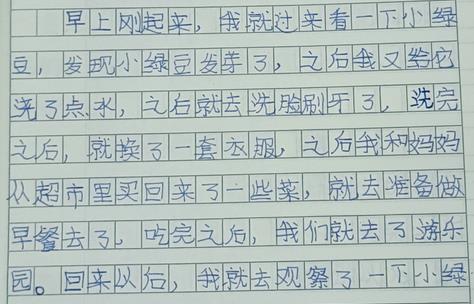 早上刚起来，我就过来看一下小绿
豆，发现小绿豆发芽了，之后我又给它
浇了点水，之后就去洗脸刷牙了，洗完
之后，就换了一套衣服，之后我和妈妈
从超市里买回来了一些菜，就去准备做
早餐去了，吃完之后，我们就去了游乐
园。回来以后，我就去观察了一下小绿